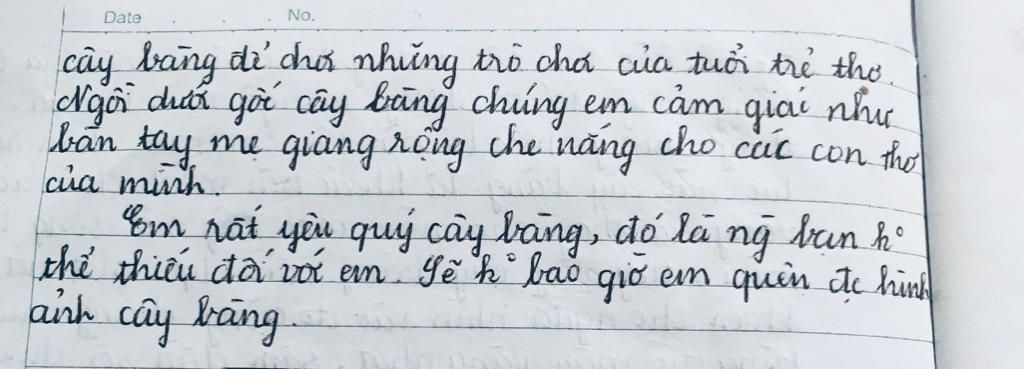 Date . . No.
cây bàng để chơi những trò chơi của tuổi trẻ thơ.
Ngồi dưới gốc cây bàng chúng em cảm giác như
bàn tay mẹ giang rộng che nắng cho các con thơ
của mình.
Em rất yêu quý cây bàng, đó là ng bạn k°
thể thiếu đối với em. Sẽ k° bao giờ em quên đc hình
ảnh cây bàng.